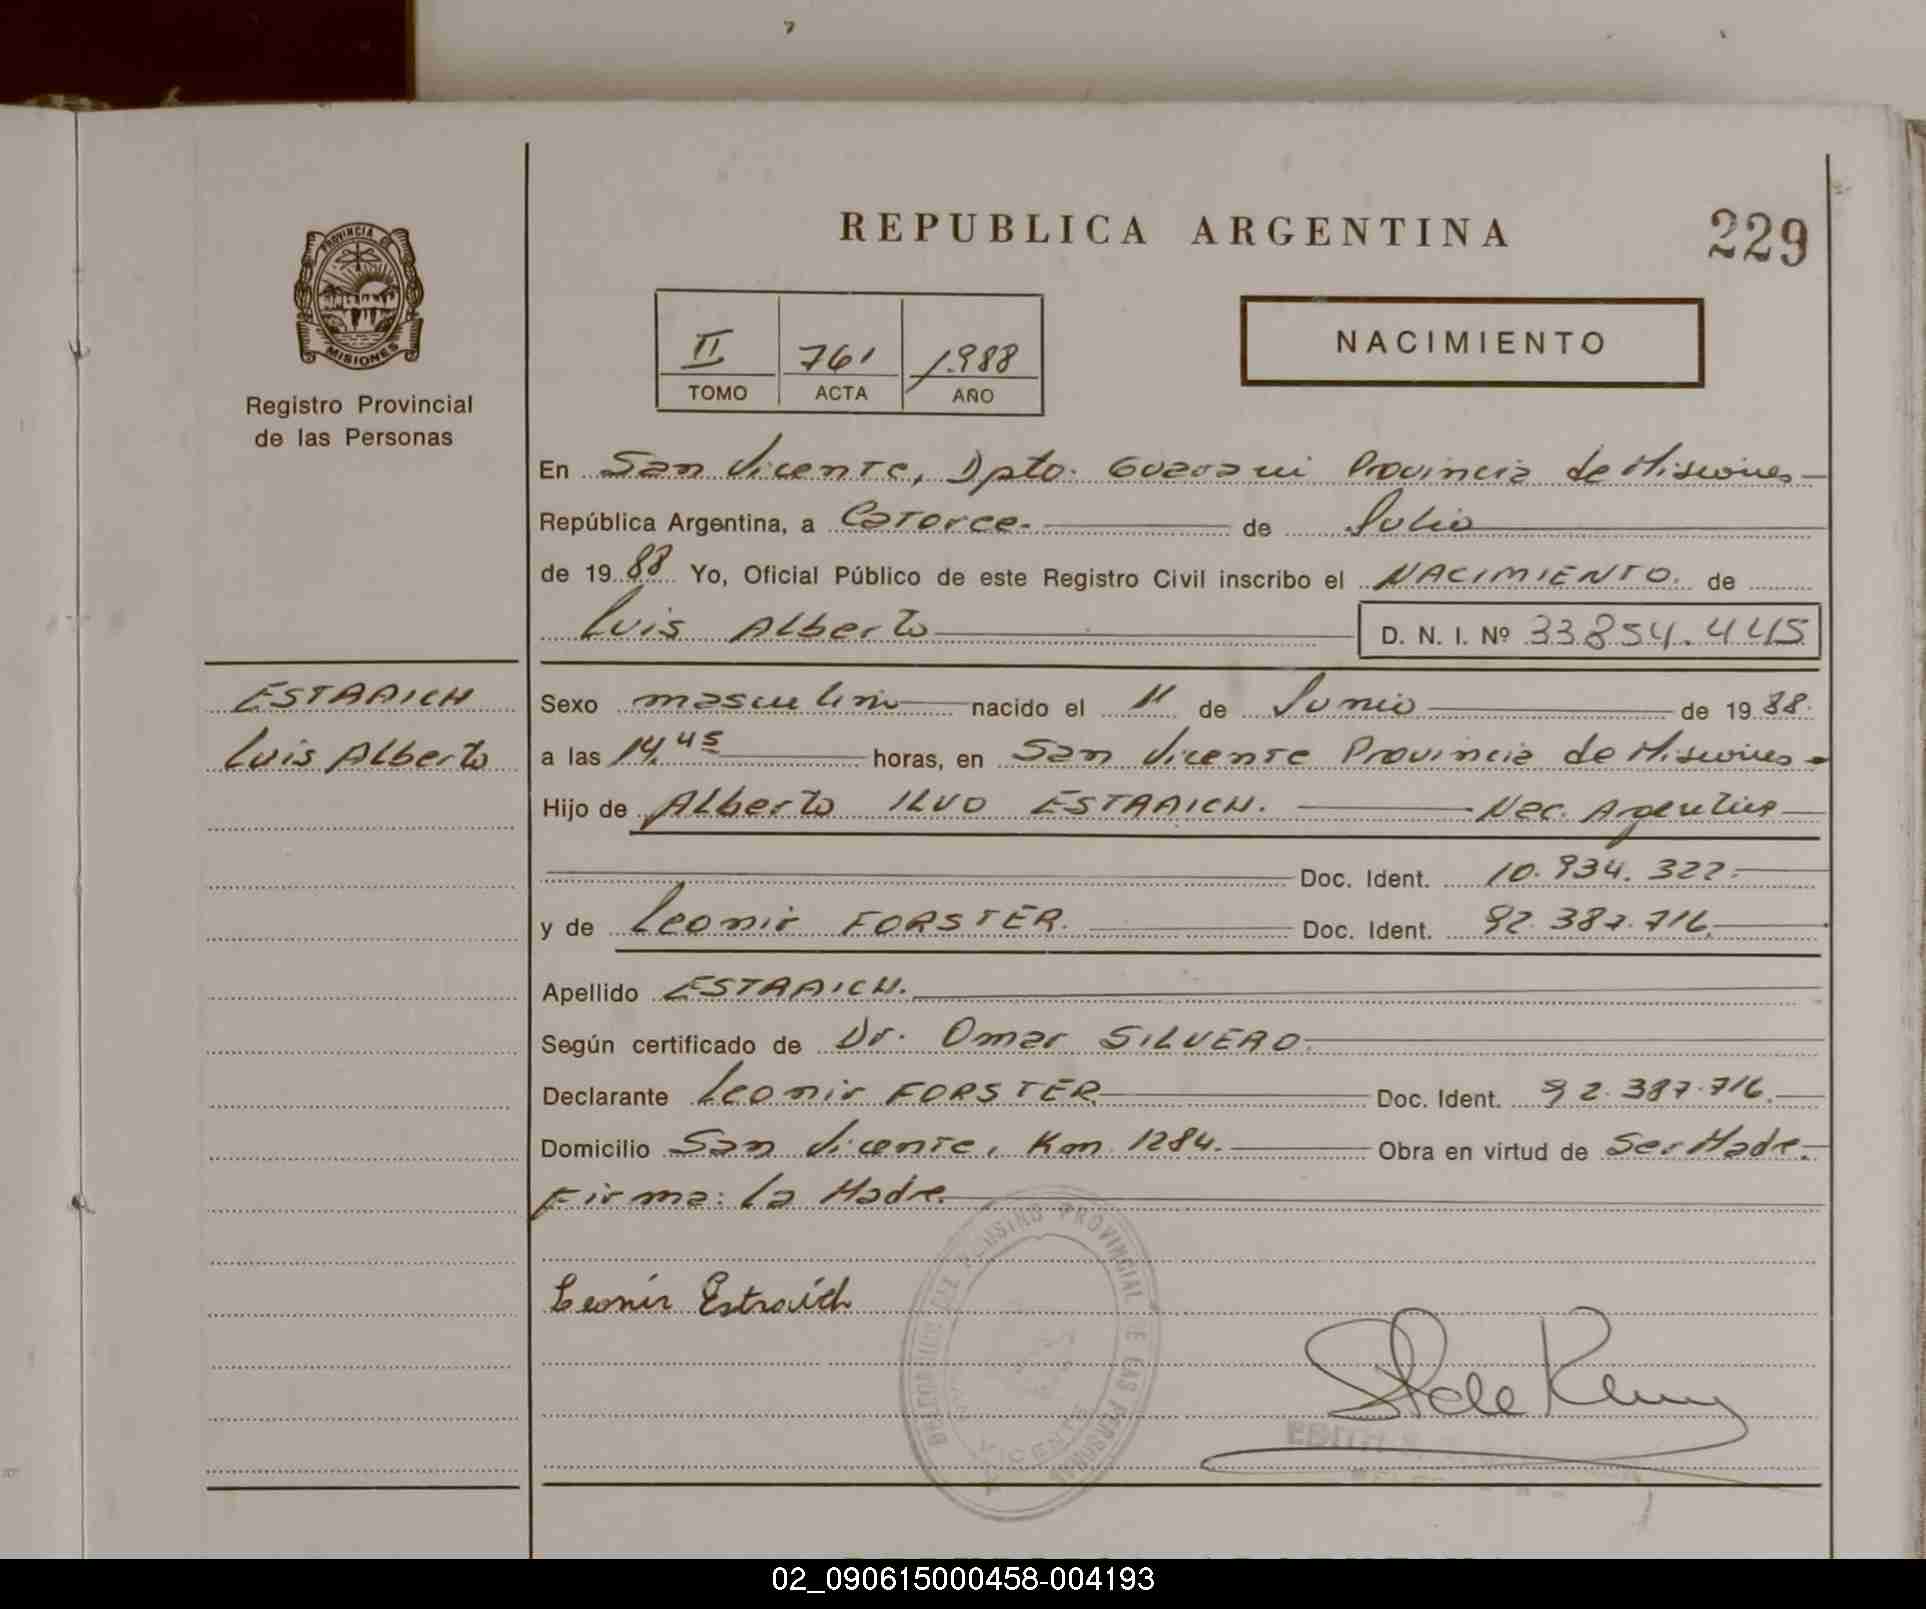 REPUBLICA ARGENTINA
229
PROVINCIA DE
MISIONES
Registro Provincial
de las Personas
II 761 1.988
TOMO ACTA AÑO
NACIMIENTO
En San Vicente, Dpto. Guarani Provincia de Misiones
República Argentina, a Catorce. de Julio
de 19 88 Yo, Oficial Público de este Registro Civil inscribo el NACIMIENTO. de
Luis Alberto D. N. I. Nº 33.854.445
ESTRAICH
Luis Alberto
Sexo masculino nacido el 11 de Junio de 19 88.
a las 14.45 horas, en San Vicente Provincia de Misiones
Hijo de Alberto ILVO ESTRAICH. Nac. Argentina
Doc. Ident. 10.934.322.
y de Leonir FORSTER. Doc. Ident. 92.387.716.
Apellido ESTRAICH.
Según certificado de Dr. Omar SILVERO.
Declarante Leonir FORSTER Doc. Ident. 92.387.716.
Domicilio San Vicente, Km 1284. Obra en virtud de Ser Madre.
Firma: La Madre.
Leonir Estraich
PROVINCIAL DE LAS PERSONAS
VICENTE
EDITH
02_090615000458-004193